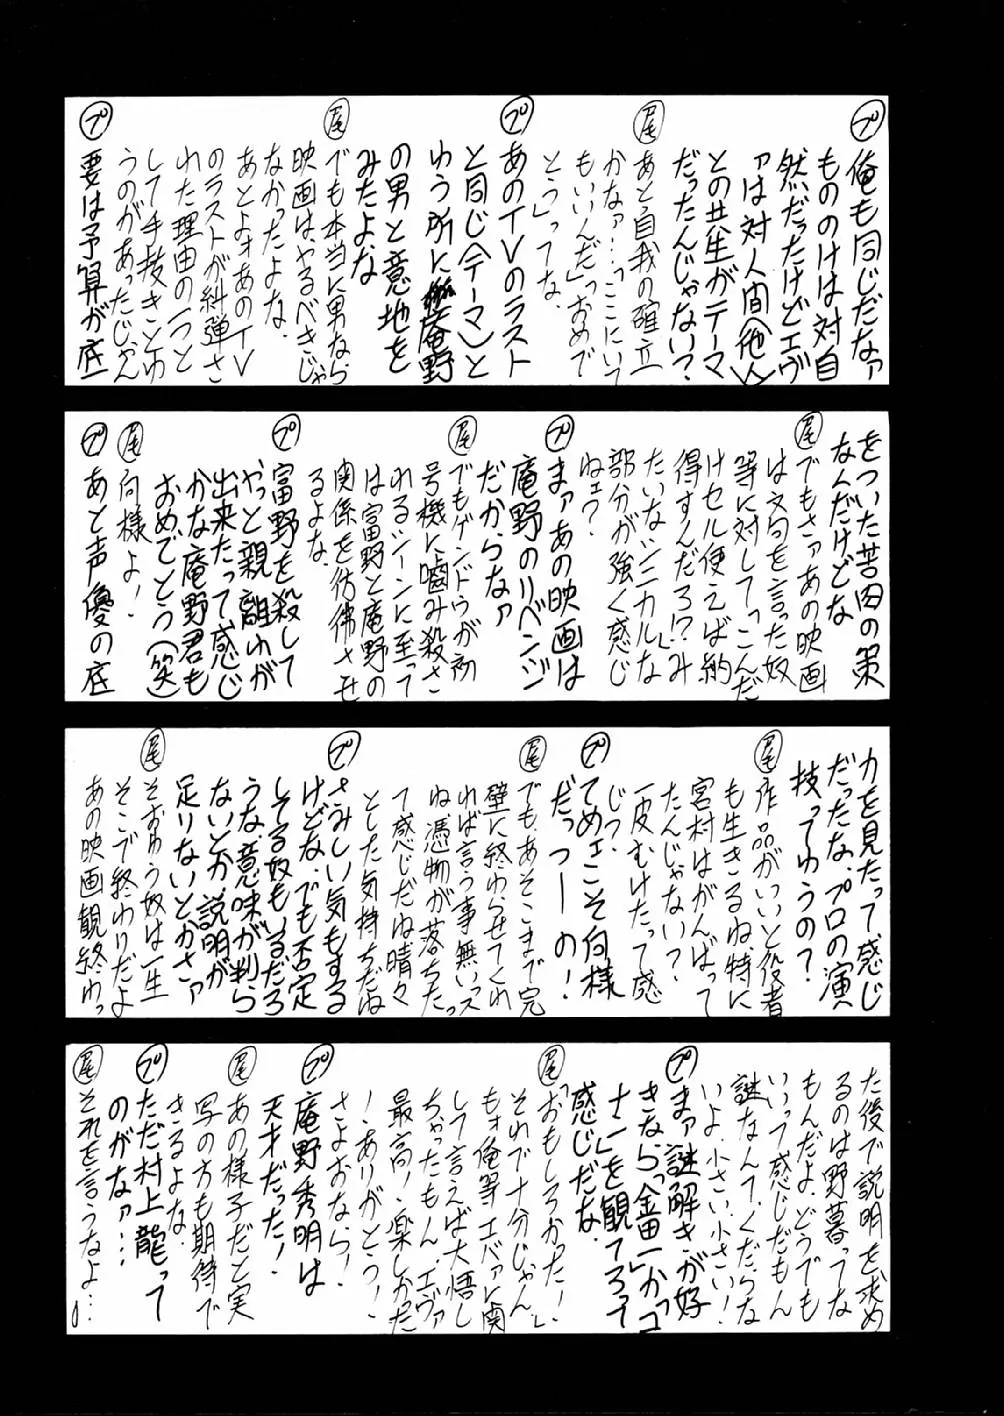 ㋫゜俺も同じだなァ
もののけは対自
然だったけどエヴ
ァは対人間(他人)
との共生がテーマ
だったんじゃない?
尾 あと自我の確立
かなァ…「ここにいて
もいいんだ」っおめで
とう」ってな、
プ あのTVのラスト
と同じ〈テーマ〉と
ゆう所に庵野
の男と意地を
みたよな
尾 でも本当に男なら
映画は、やるべきじゃ
なかったよな、
あとよォあのTV
のラストが糾弾さ
れた理由の一つと
して手抜きとゆ
うのがあったじゃん
プ 要は予算が底
をついた苦田の策
なんだけどな
尾 でもさァあの映画
は文句を言った奴
等に対して「こんだ
けセル使えば納
得すんだろ!?」み
たいなシニカルな
部分が強く感じ
ねェ?
プ まァあの映画は
庵野のリベンジ
だからなァ
尾 でもゲンドウが初
号機に噛み殺さ
れるシーンに至って
は富野と庵野の
関係を彷彿させ
るよな、
プ 富野を殺して
やっと親離れが
出来たって感じ
かな庵野君も
おめでとう(笑)
尾 向様よ!
プ あと声優の底
力を見たって感じ
だったな、プロの演
技ってゆうの?
尾 作品がいいと役者
も生きるね、特に
宮村はがんばって
たんじゃない?
一皮むけたって感
じっ、
プ てめェこそ向様
だっつーの!
尾 でも、あそこまで完
壁に終わらせてくれ
れば言う事無いッス
ね憑物が落ちたっ
て感じだね晴々
とした気持ちだね
プ さみしい気もする
けどな、でも否定
してる奴もいるだろ
うな、意味が判ら
ないとか、説明が
足りないとかさァ
尾 そおゆう奴は一生
そこで終わりだよ
あの映画観終わっ
た後で説明を求め
るのは野暮ってな
もんだよ、どうでも
いいって感じだもん
謎なんて、くだらな
いよ、小さい、小さい!
プ まァ謎解きが好
きなら「金田一」か「コ
ナン」を観てろって
感じだな、
尾 「おもしろかった!」
それで十分じゃん、
もォ俺等エバァに関
して言えば大悟し
ちゃったもん、エヴァ
最高!楽しかった
!ありがとう!
さよおなら!
プ 庵野秀明は
天才だった!
尾 あの様子だと実
写の方も期待で
きるよな、
プ ただ村上龍って
のがなァ…
尾 それを言うなよ…